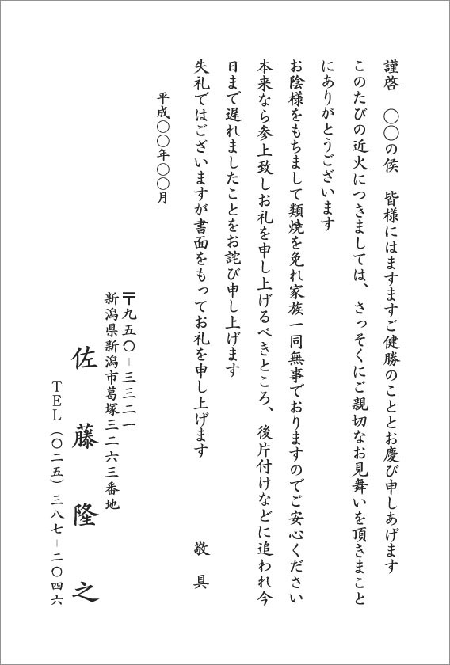 謹啓　〇〇の侯　皆様にはますますご健勝のこととお慶び申しあげます
このたびの近火につきましては、さっそくにご親切なお見舞いを頂きまこと
にありがとうございます
お陰様をもちまして類焼を免れ家族一同無事でおりますのでご安心ください
本来なら参上致しお礼を申し上げるべきところ、後片付けなどに追われ今
日まで遅れましたことをお詫び申し上げます
失礼ではございますが書面をもってお礼を申し上げます　　敬　具
平成〇〇年〇〇月
〒九五〇－三三二一
新潟県新潟市葛塚三二六三番地
佐藤隆之
ＴＥＬ（〇二五）三八七－二〇四六